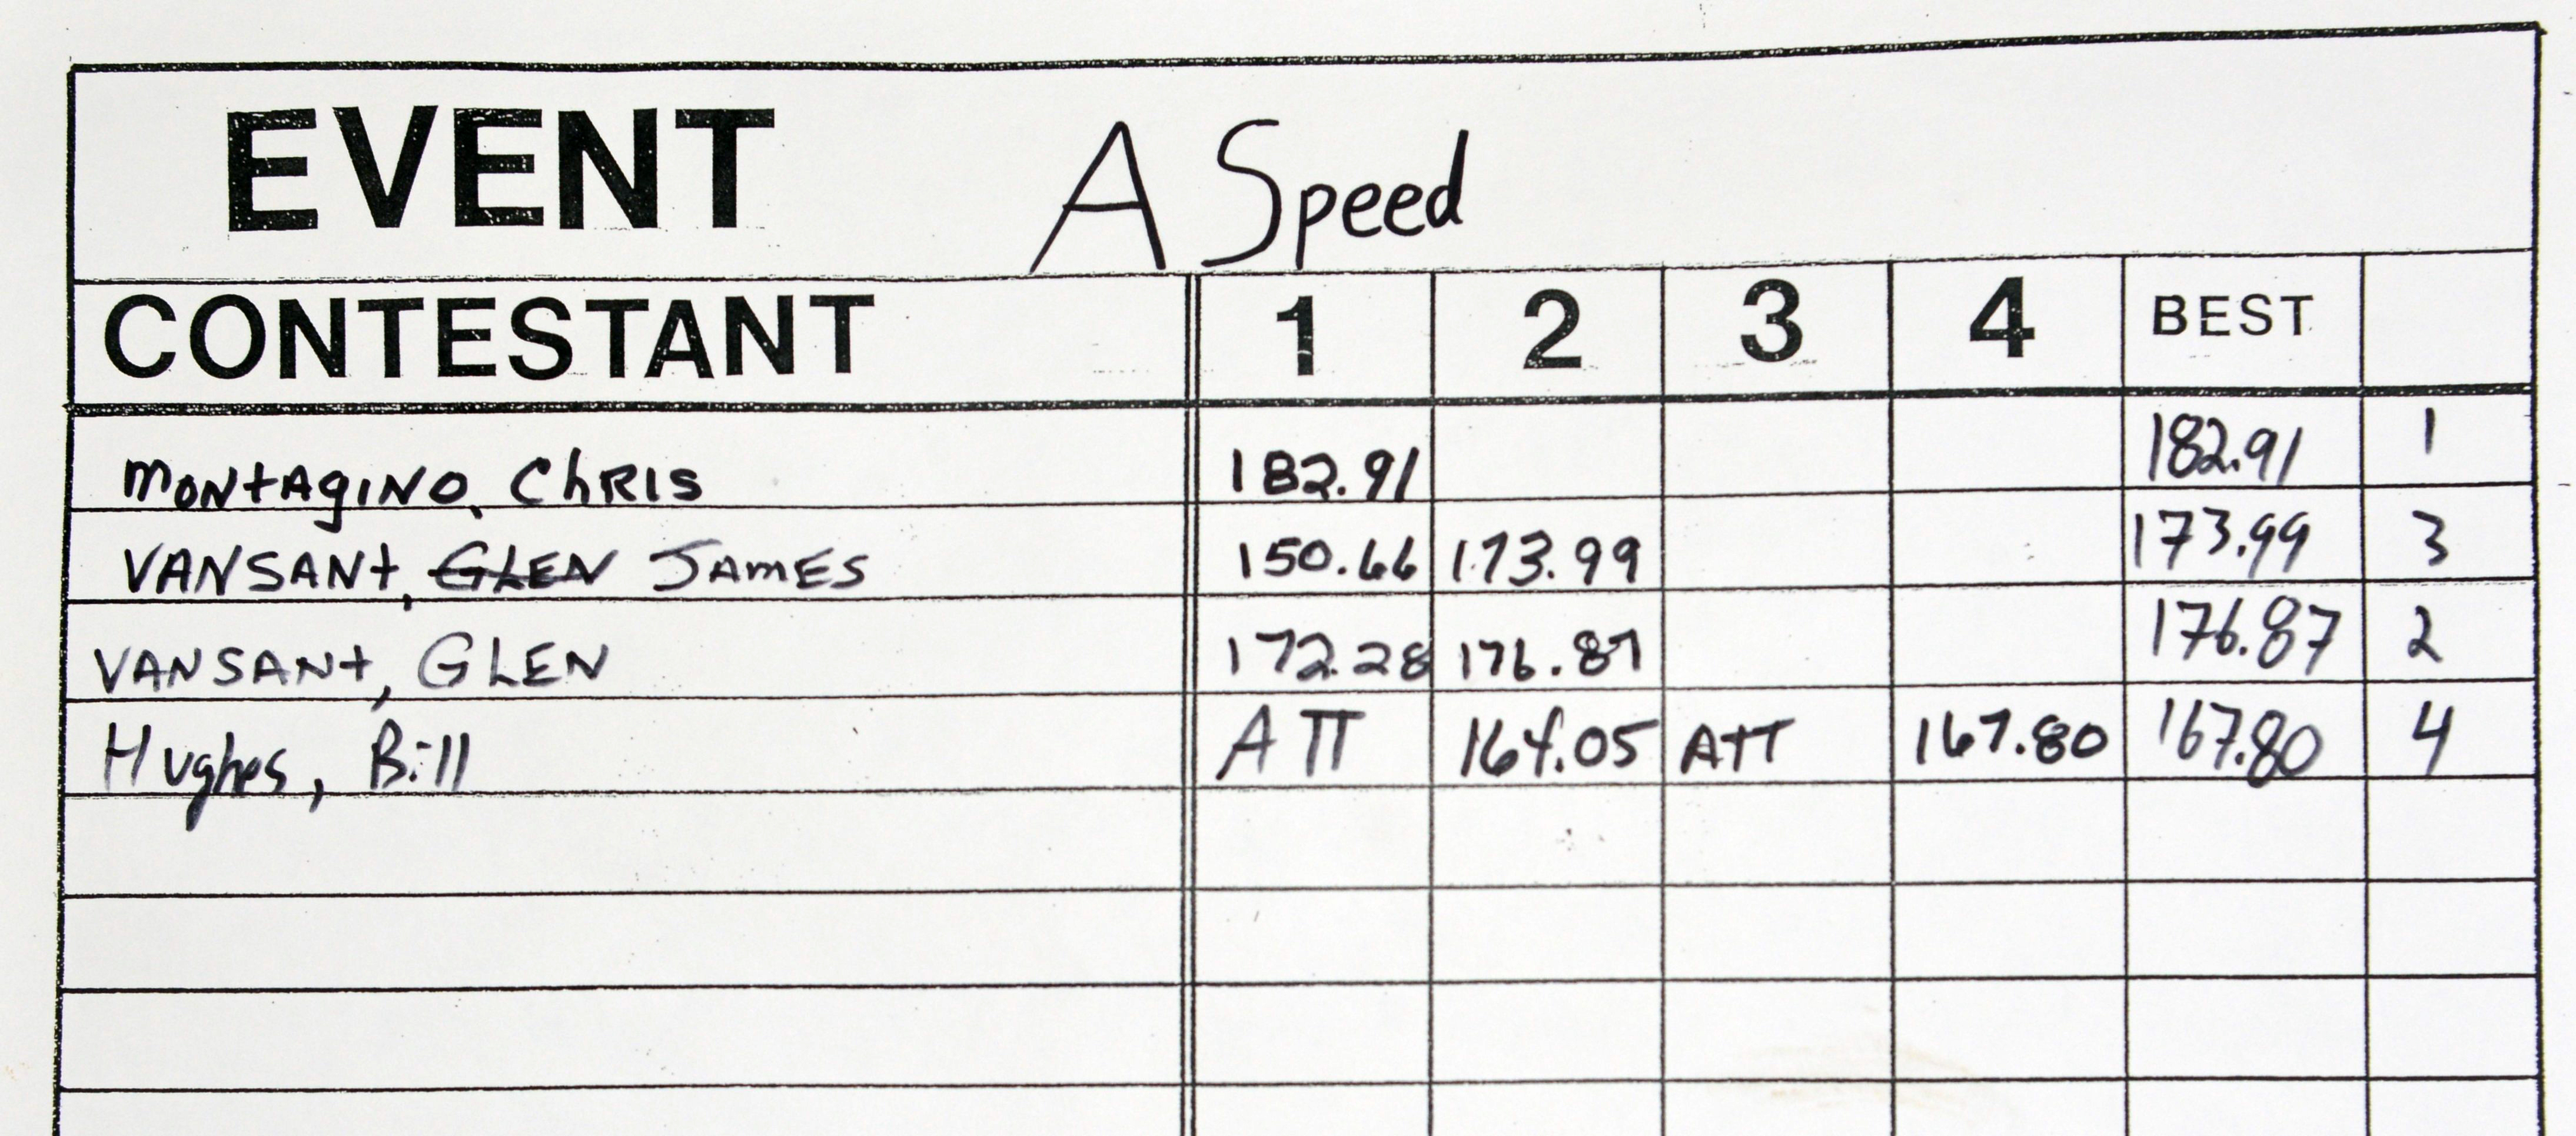 EVENT A Speed
CONTESTANT 1 2 3 4 BEST
MONTAGINO, CHRIS 182.91 182.91 1
VANSANT, GLEN JAMES 150.66 173.99 173.99 3
VANSANT, GLEN 172.28 176.87 176.87 2
Hughes, Bill ATT 164.05 ATT 167.80 167.80 4